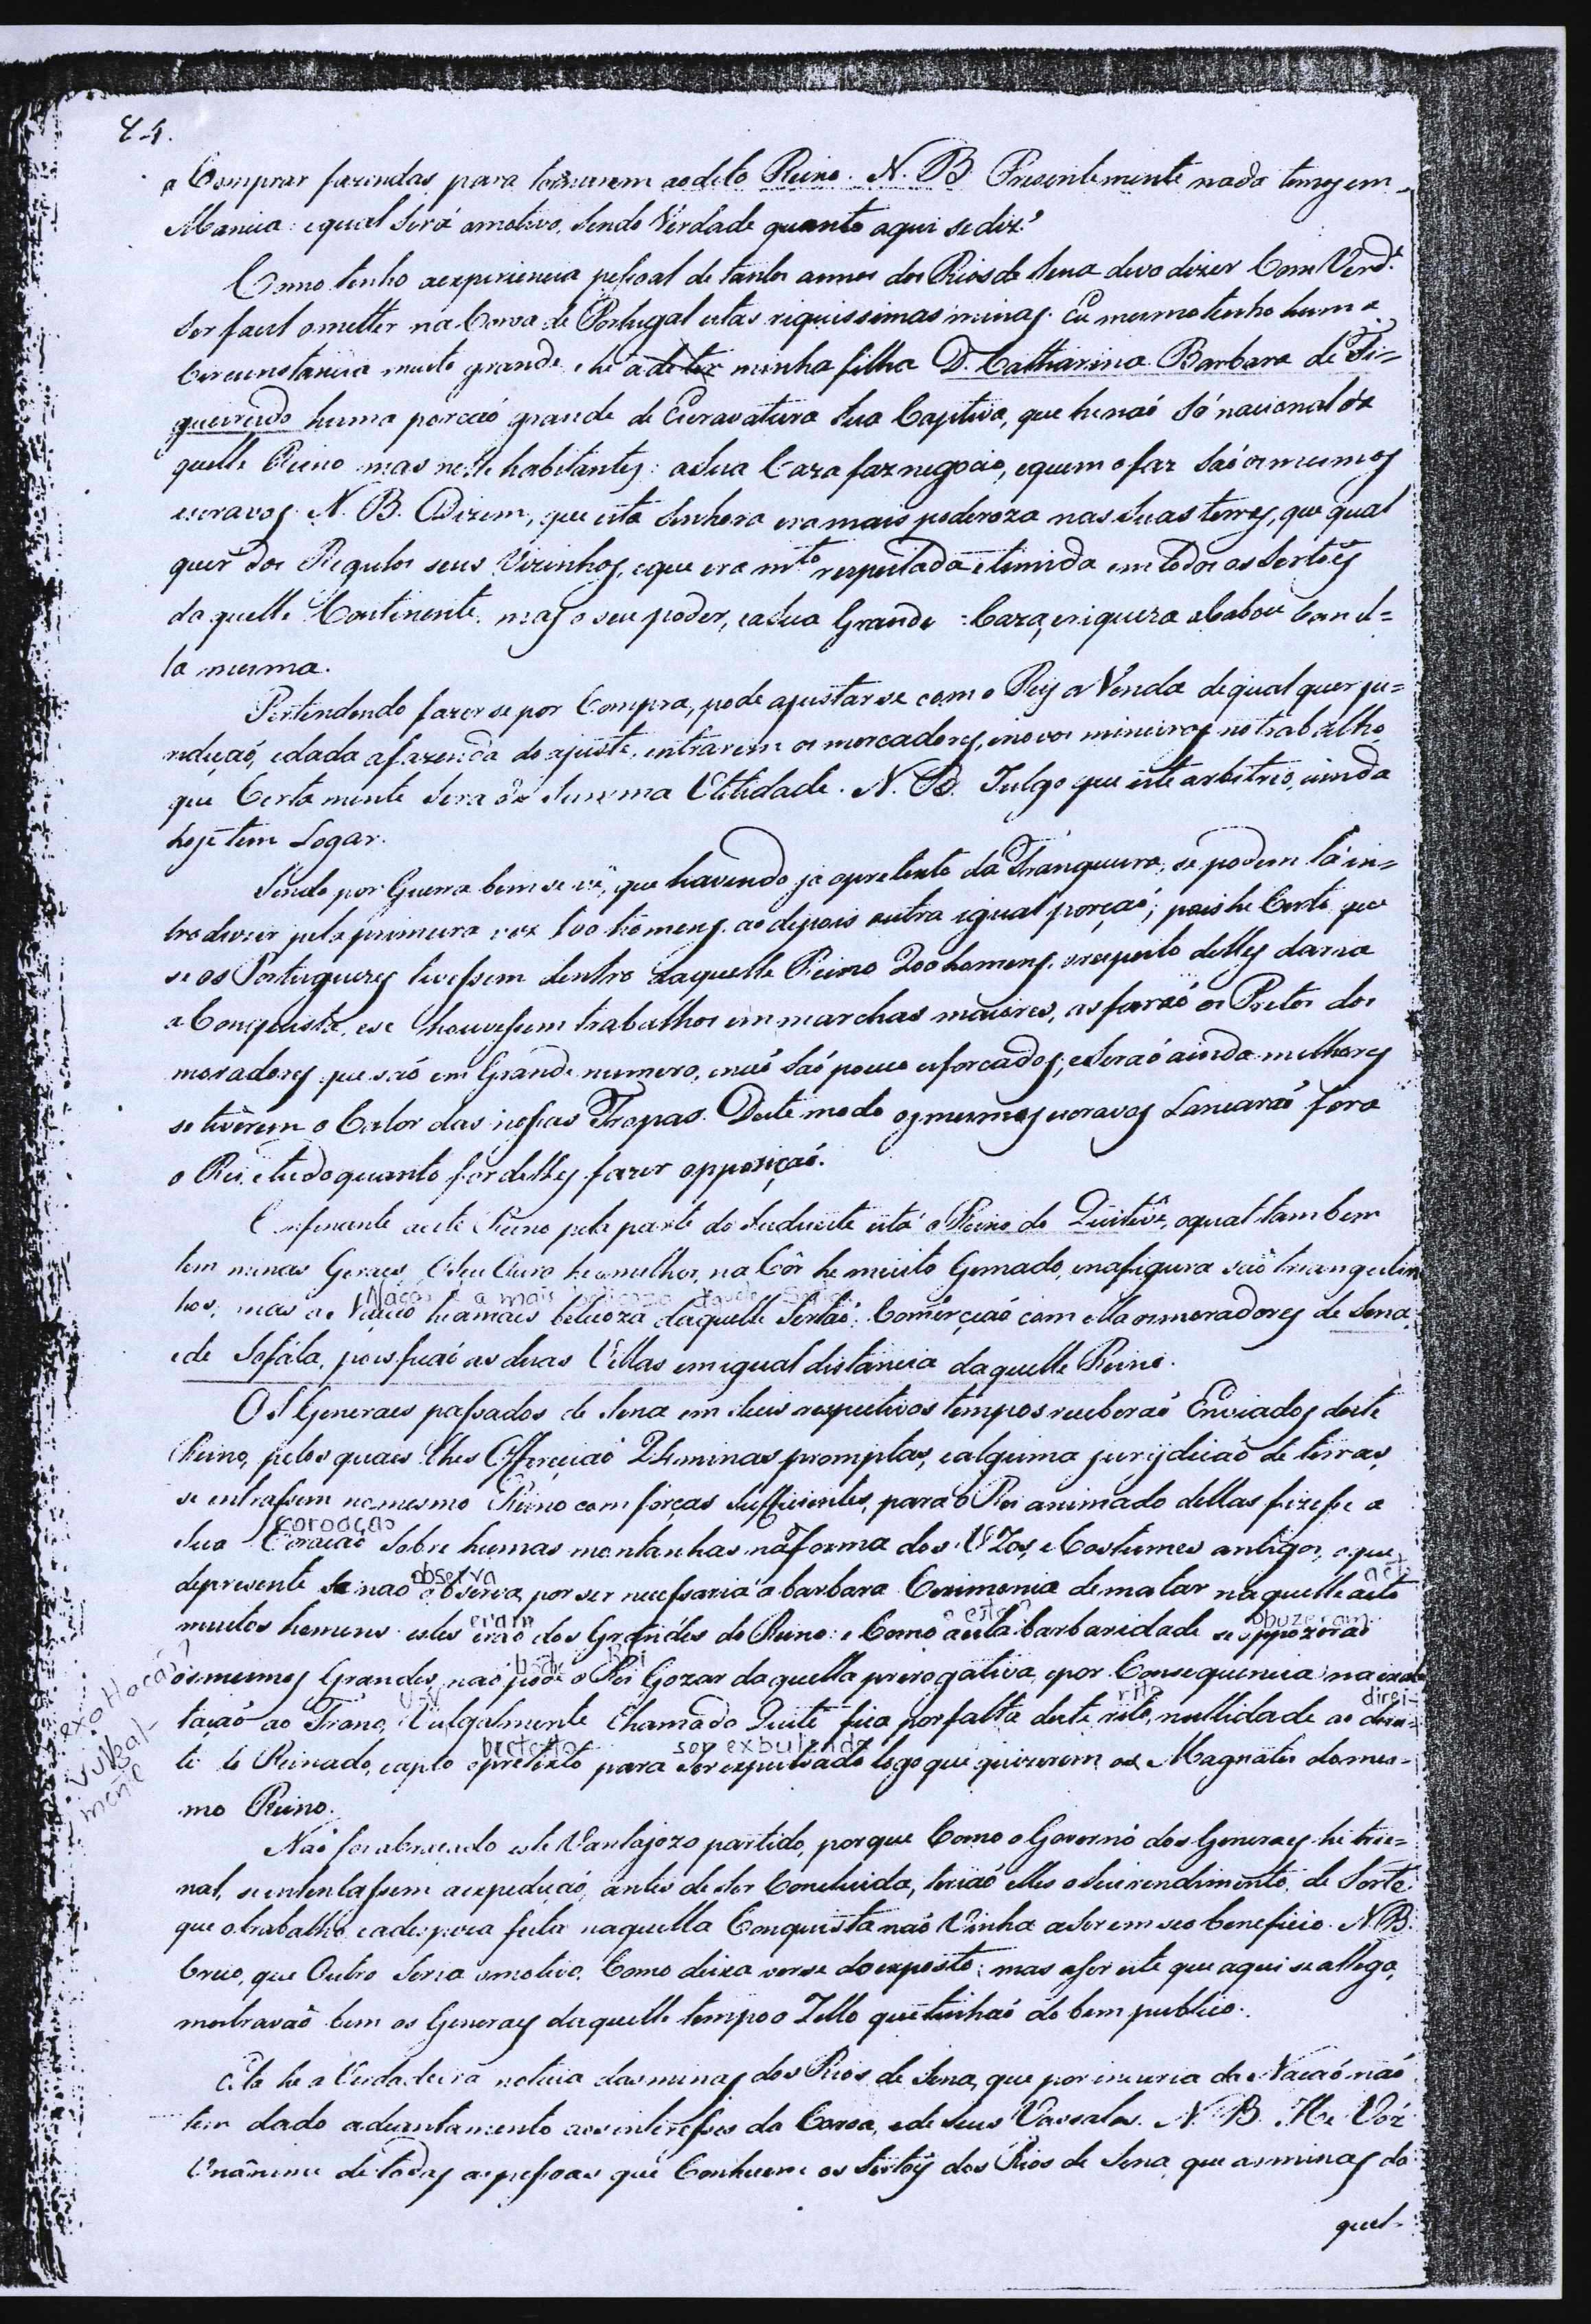 84.
a Comprar fazendas para tornarem ao dito Reino. N. B. Presentemente nada temos em
Manica: e qual será o motivo, sendo Verdade quanto aqui se diz?
Como tenho a experiencia pessoal de tantos annos dos Rios de Sena devo dizer Com Verd.e
Ser facil o metter na Coroa de Portugal estas riquissimas minas. Eu mesmo tenho huma
Circunstancia muito grande, he a de ter minha filha D. Catharina Barbara de Fi=
gueiredo huma porcaõ grande de Escravatura Sua Captiva, que he naõ Só nacional da
quelle Reino mas nelle habitantes: a Sua Caza faz negocio, e quem o faz Saõ os mesmos
escravos. N. B. Dizem, que esta Senhora era mais poderoza nas Suas terras, que qual
quer dos Regulos seus Vizinhos, e que era m.to respeitada e temida em todos os Sertões
daquelle Continente, mas o seu poder, e a Sua Grande Caza, e riqueza acabou Com el=
la mesma.
Pertendendo fazer se por Compra, pode ajustar se com o Rey a Venda de qual quer ju=
redicaõ, e dada a fazenda do ajuste, entrarem os mercadores, e novos mineiros no trabalho
que Certamente Sera de Summa Utilidade. N. B. Julgo que este arbitrio, ainda
hoje tem Logar.
Sendo por Guerra bem se vê, que havendo já o pretexto da Tranqueira, se podem lá in=
troduzir pela primeira vez 100 homens. ao depois outra igual porçaõ; pois he Certo que
se os Portuguezes tivessem dentro daquelle Reino 200 homens, o respeito delles daria
a Conquista, e se houvessem trabalhos em marchas maiores, as faraõ os Pretos dos
moradores que saõ em Grande numero, e naõ Saõ pouco esforcados, e Seraõ ainda melhores
se tivèrem o Calor das nossas Tropas. Deste modo os mesmos escravos Lancaraõ fora
o Rei, e tudo quanto for delles fazer opposiçaõ.
Confinante a este Reino pela parte do Sudueste está o Reino do Quitêve, o qual tambem
tem minas Geraes, o Seu Ouro he o melhor, na Côr he muito Gemado, e na figura saõ triangulin
Naçaõ é a mais belicoza daquele Sertaõ
hos, mas a Naçaõ he a mais belicoza daquelle Sertaõ: Comerçeaõ com ella os moradores de Sena,
e de Sofála, pois ficaõ as duas Villas em igual distancia daquelle Reino.
OS Generaes passados de Sena em Seus respectivos tempos receberaõ Enviados deste
Reino, pelos quaes lhes Offereciaõ 24 minas promptas, e alguma jurisdicaõ de terras,
se entrassem no mesmo Reino com forças Sufficientes, para o Rei animado dellas fizesse a
coroaçaõ
Sua Coroacaõ Sobre humas montanhas na forma dos UZos, e Costumes antigos, o que
observa acto
de presente Se naõ observa, por ser necessaria a barbara Cerimonia de matar naquelle acto
eram a esta opuzeram
muitos homens: estes eraõ dos Grandes do Reino: e Como a esta barbaridade se oppozeraõ
pode Rei
os mesmos Grandes, naõ póde o Rei Gozar daquella prerogativa, e por Consequencia na exal
exaltacaõ? rito direi-
taçaõ ao Trono, Vulgalmente Chamado Quite fica por falta deste rito, nullidade ao direi=
vulgal-
mente
pretexto ser expulsado
to do Reinado, e apto o pretexto para Ser expulsado logo que quizerem os Magnates do mes-
mo Reino.
Naõ foi abracado este Vantajozo partido, porque Como o Governo dos Generaes he trie=
nal, se intentassem a expediçaõ, antes de Ser Concluida, teriaõ elles o Seu rendimento, de Sorte
que o trabalho, e a despeza feita naquella Conquista naõ Vinha a Ser em seo beneficio. N. B.
Creio, que Outro Seria o motivo, Como deixa ver se do exposto; mas a Ser este que aqui se allega,
mostravaõ bem os Generaes daquelle tempo o Zello que tinhaõ do bem publico.
Esta he a Verdadeira noticia das minas dos Rios de Sena, que por incuria da Nacaõ naõ
tem dado adiantamento aos interesses da Coroa, e de Seus Vassalos. N. B. He Vóz
Unânime de todas as pessoas que Conhecem os Sertões dos Rios de Sena, que as minas da
quel-